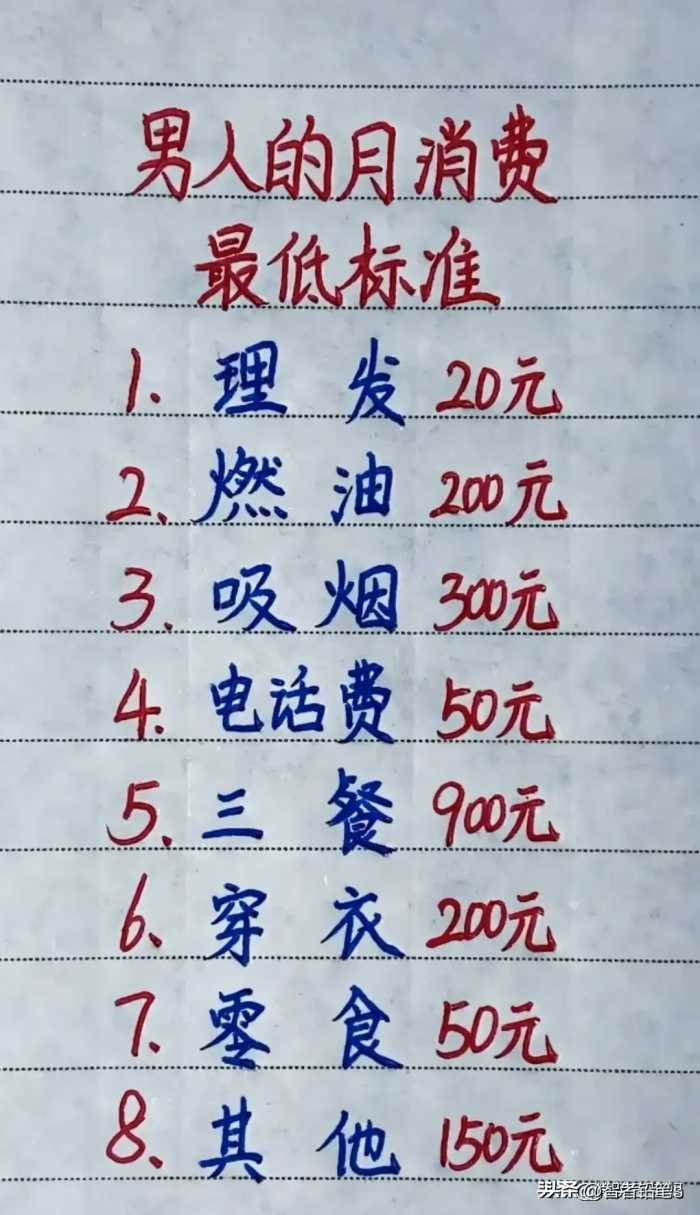 男人的月消费
最低标准
1. 理发 20元
2. 燃油 200元
3. 吸烟 300元
4. 电话费 50元
5. 三餐 900元
6. 穿衣 200元
7. 零食 50元
8. 其他 150元